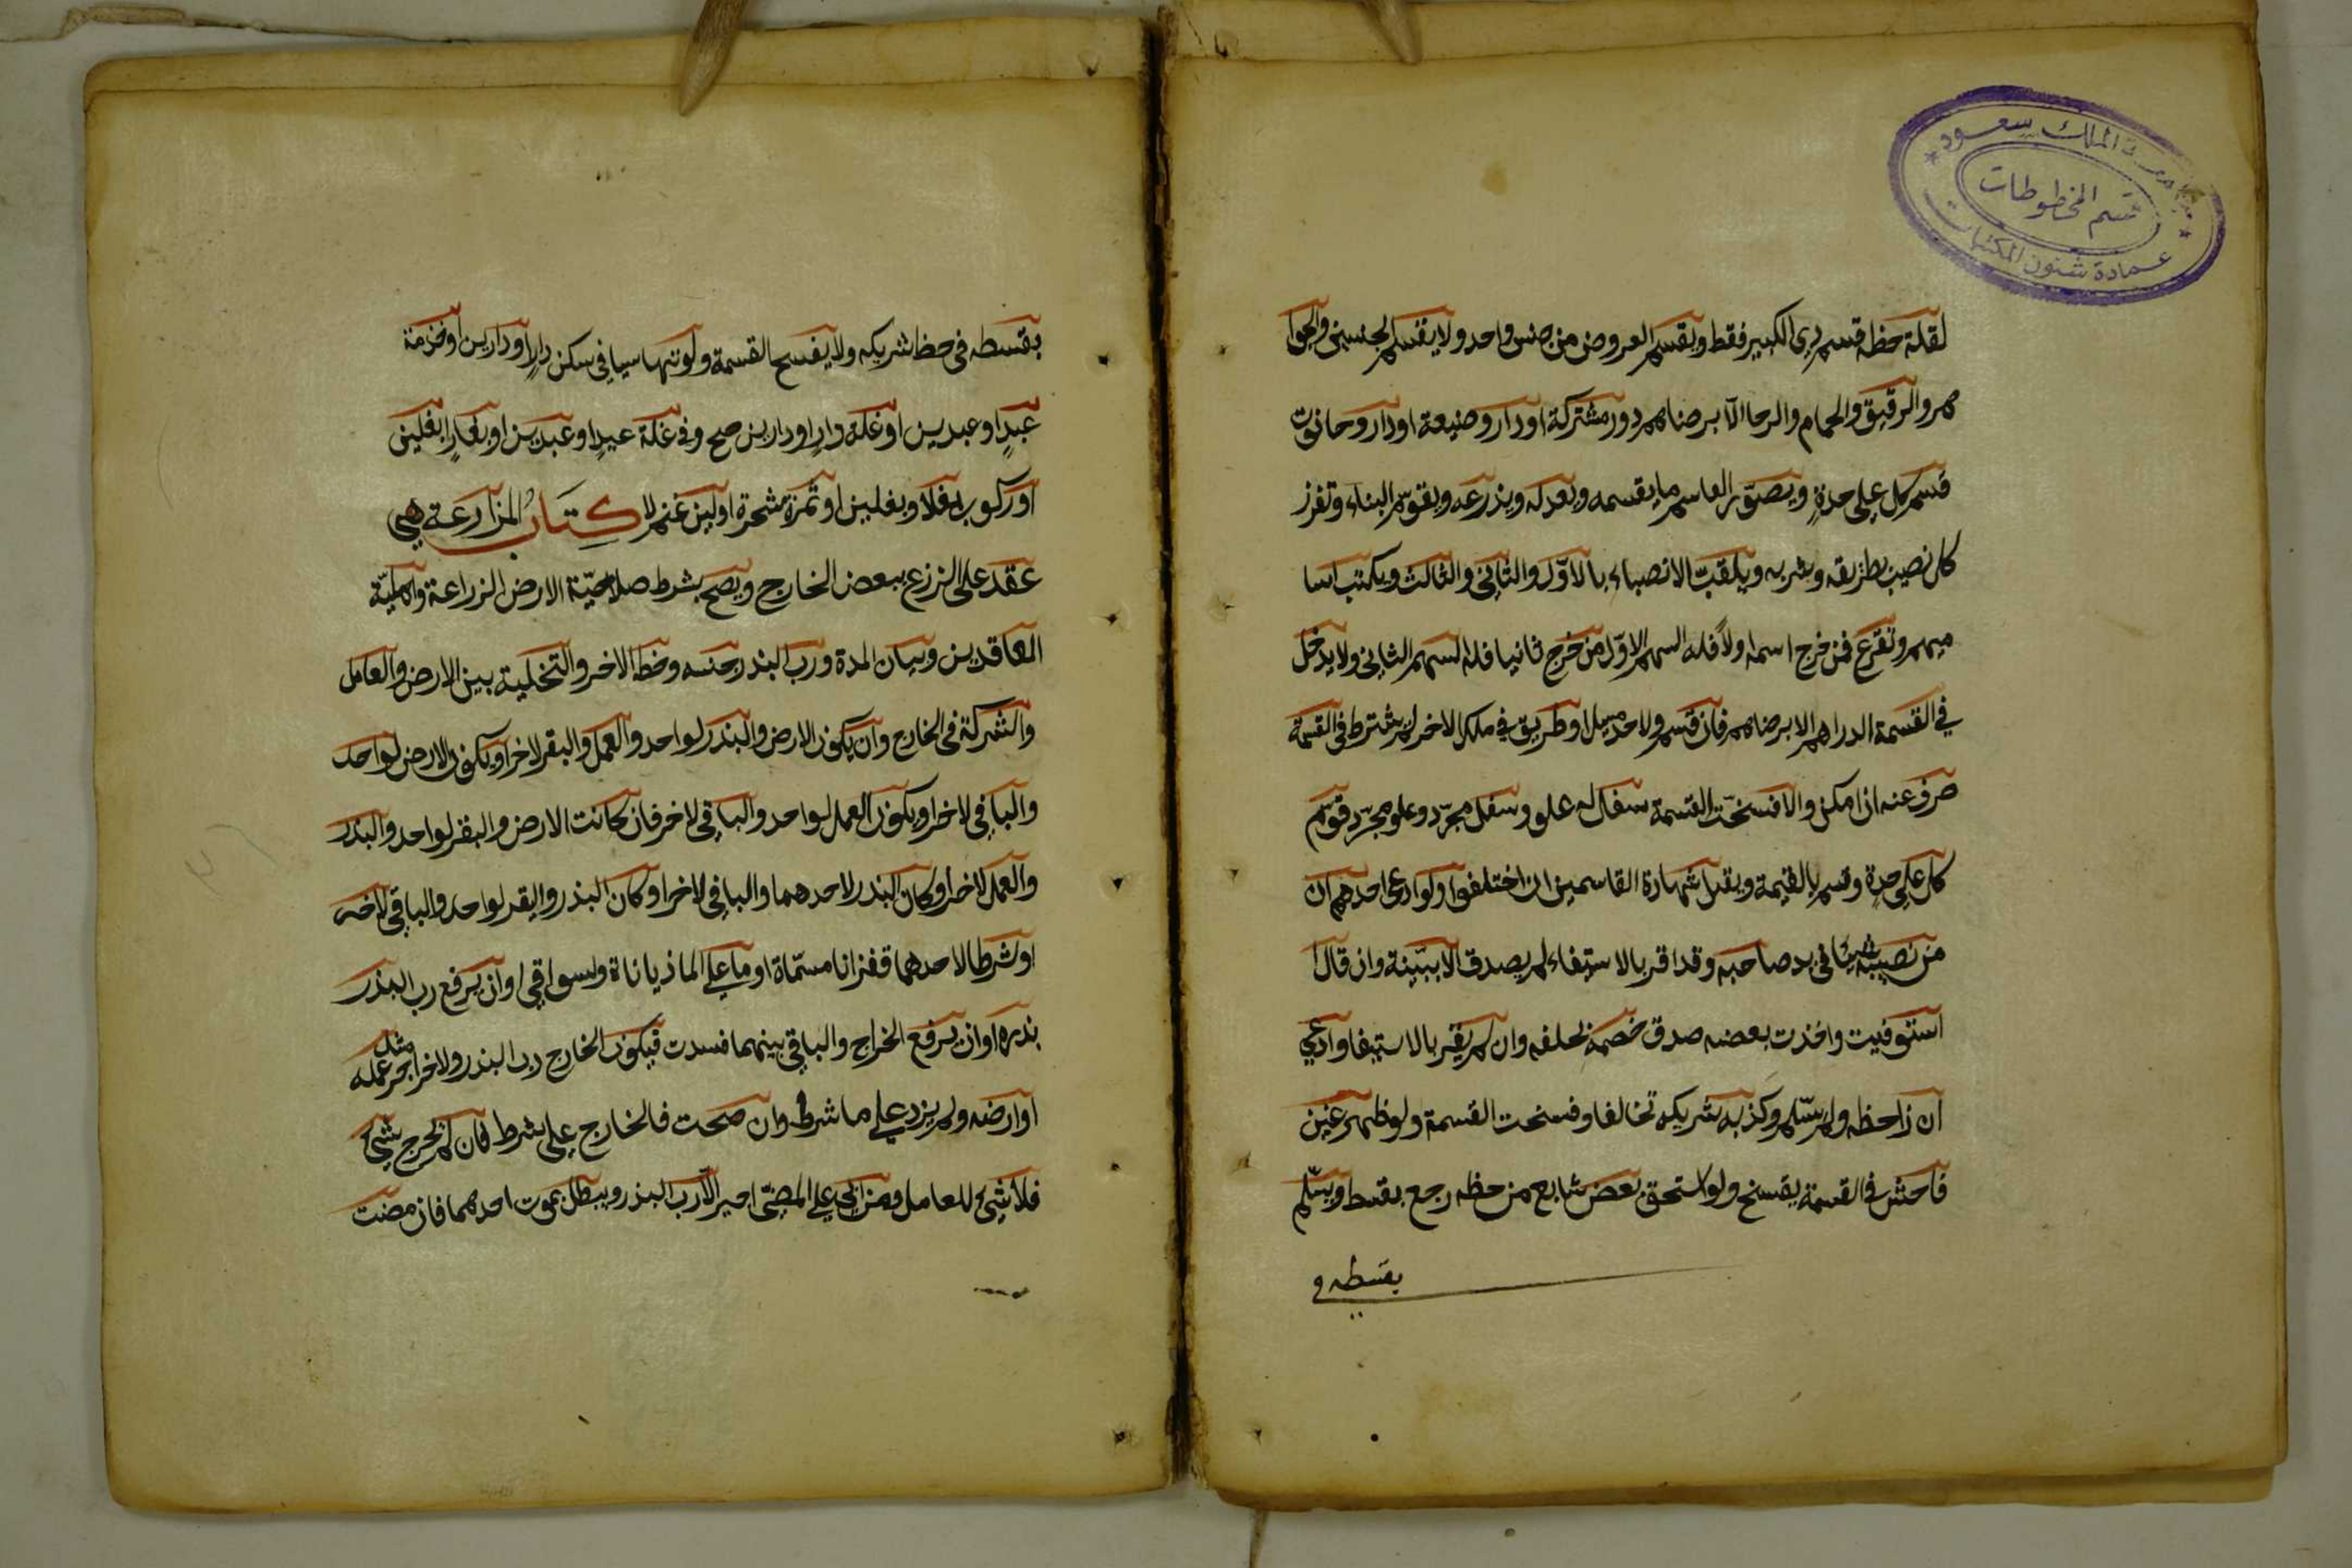 جامعة الملك سعود
قسم المخطوطات
عمادة شئون المكتبات
لقلة حظه قسم بذي الكبير فقط ويقسم العروض من جنس واحد ولا يقسم الجنسين والجوا
هر والرقيق والحمام والرحا الا برضاهم دور مشتركة او دار وضيعة او دار وحانوت
قسم كل على حدةٍ ويصوّر القاسم ما يقسمه ويعدله ويذرعه ويقوّم البناء وتفرز
كل نصيب بطريقه وشربه ويلقبّ الانصباء بالاوّل والثاني والثالث ويكتب اسا
ميهم وتقرع فمن خرج اسمه اولاً فله السهم الاوّل من خرج ثانيا فله السهم الثاني ولا يدخل
في القسمة الدراهم الا برضاهم فان قسم ولاحد مسيل او طريق في ملك الاخر لم يشترط في القسمة
صرف عنه ان امكن والا فسخت القسمة سفل له علو وسفل مجرّد وعلو مجرّد قوّم
كل على حدةٍ وقسم بالقيمة ويقبل شهادة القاسمين ان اختلفوا ولو ادعى احدهم ان
من نصيبه شيئا في يد صاحبه وقد اقر بالاستيفاء لم يصدق الا ببّينة وان قال
استوفيت واخذت بعضه صدق خصمه بحلفه وان لم يقر بالاستيفا وادعي
ان ذا حظه ولم يسّلم وكذبه شريكه تحالفا وفسخت القسمة ولو ظهر غبن
فاحش في القسمة يفسخ ولو استحق بعض شايع من حظه رجع بقسط ويسّلم
بقسطه في
بقسطه في حظ شريكه ولا يفسح القسمة ولو تهاسيا في سكن دارٍ او دارين او خدمة
عبدٍ او عبدين او غلة دارٍ او دارين صح وفي غلة عبدٍ او عبدين او بغلٍ او بغلين
او ركوب بغل او بغلين او ثمرة شجرة او لبن غنم لا كِتَابُ المزارعة هي
عقد على الزرع ببعض الخارج ويصح بشرط صلاحيّة الارض الزراعة واهليّة
العاقدين وبيان المدة ورب البذر وجنسه وحظ الاخر والتخلية بين الارض والعامل
والشركة في الخارج وان يكون الارض والبذر لواحد والعمل والبقر لاخر او يكون الارض لواحد
والباقي لاخر او يكون العمل لواحد والباقي لاخر فان كانت الارض والبقر لواحد والبذر
والعمل لاخر او كان البذر لاحدهما والباقي لاخر او كان البذر والبقر لواحد والباقي لاخر
او شرطا لاحدهما قفزانا مسمّاة او ما على الماذيانات والسواقي او ان يرفع رب البذر
بذره او ان يرفع الخراج والباقي بينهما فسدت فيكون الخارج رب البذر ولاخر اجر مثل عمله
او ارضه ولم يزد على ما شرط وان صحت فالخارج على شرط فان لم يخرج شئ
فلا شئ للعامل ومن ابى على المضىّ اجبر الاّ رب البذر ويبطل بموت احدهما فان مضت